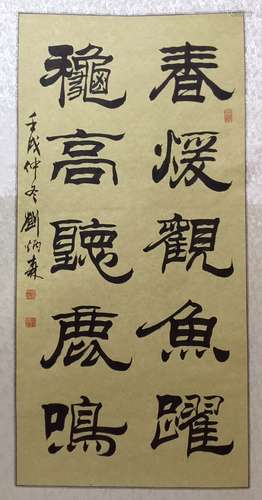 春煖觀魚躍
龝高聽鹿鳴
壬戌仲冬劉炳森